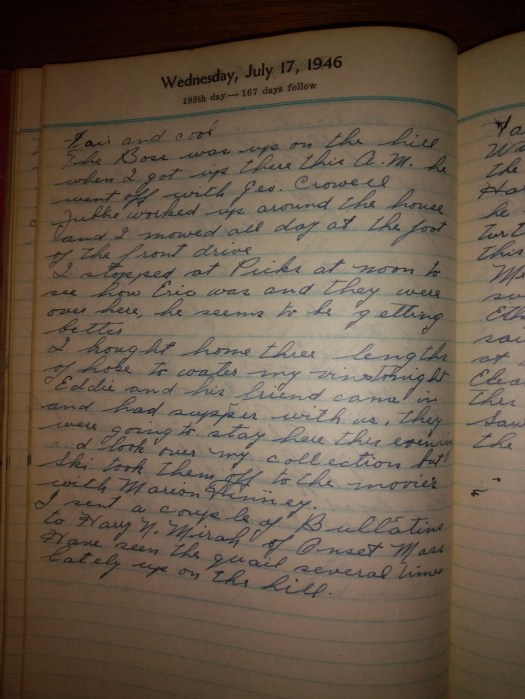 Wednesday, July 17, 1946
198th day — 167 days follow
Fair and cool
The Boss was up on the hill
when I got up there this A.M. he
went off with Geo. Crowell
worked up around the house
and I mowed all day at the foot
of the front drive
I stopped at Picks at noon to
see how Eric was and they were
over here, he seems to be getting
better
I bought home three lengths
of hose to water my vines tonight
Eddie and his friend came in
and had supper with us, they
were going to stay here this evening
and look over my collection but
Ski took them off to the movies
with Marion
I sent a couple of Bullatins
to N. Mirah of Onset Mass
Have seen the quail several times
lately up on the hill.
Wa
the
Ha
he
turt
this
Me
Eth
sai
at
Clea
the
Saw
the